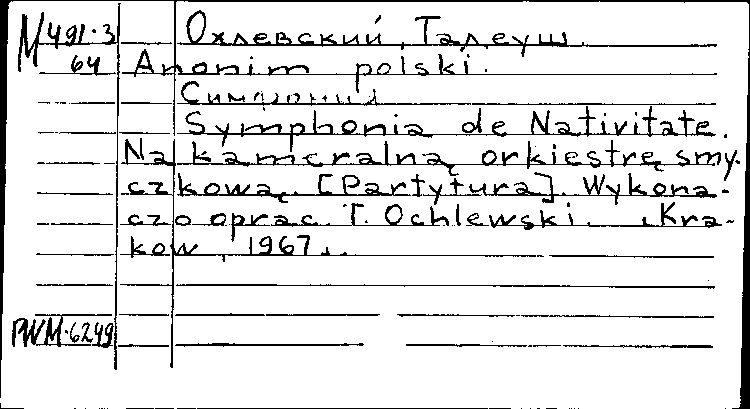 М 491-3
64
Охлевский, Тадеуш
Anonim polski.
Симфония
Symphonia de Nativitate.
Na kameralną orkiestrę smy-
czkową. [Partytura]. Wykona-
czo oprac. T. Ochlewski. Kra-
kow, 1967.
PWM-6249